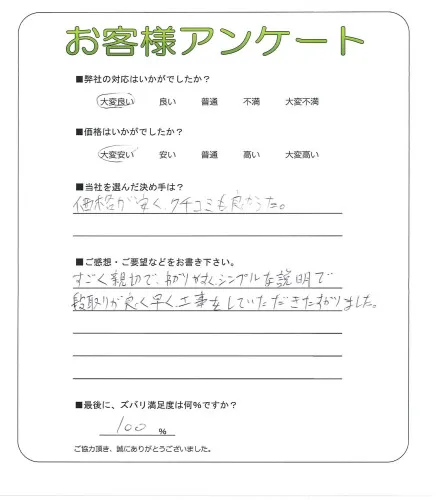 お客様アンケート
■弊社の対応はいかがでしたか？
大変良い 良い 普通 不満 大変不満
■価格はいかがでしたか？
大変安い 安い 普通 高い 大変高い
■当社を選んだ決め手は？
価格が安く、クチコミも良かった。
■ご感想・ご要望などをお書き下さい。
すごく親切で、わかりやすくシンプルな説明で
段取りが良く早く工事をしていただきたすかりました。
■最後に、ズバリ満足度は何％ですか？
100 %
ご協力頂き、誠にありがとうございました。